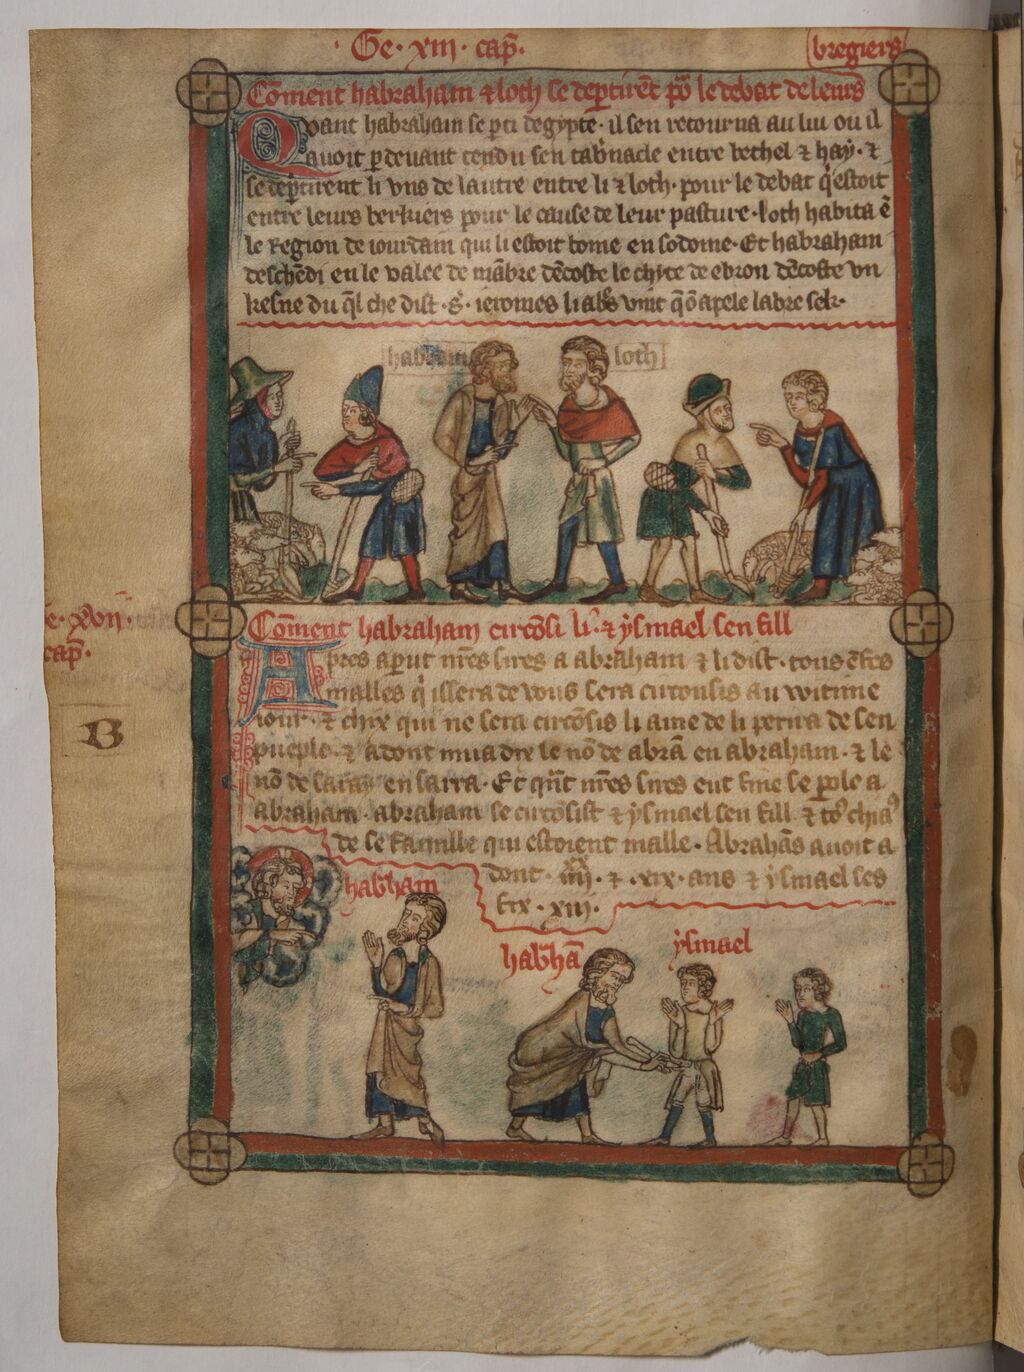 · Ge · xiii · cap̄ ·
bregiers
Cōment habraham ⁊ loth se deptirēt por le debat de leurs
Qvant habraham se pti degypte · il sen retourna au liu ou il
auoit pdeuant tendu sen tabnacle entre bethel ⁊ hay · ⁊
se deptirent li vns de lautre entre li ⁊ loth · pour le debat q̄ estoit
entre leurs berkiers pour le cause de leur pasture · loth habita ē
le Region de iourdain qui li estoit bōme en sodome · Et habraham
deschēdi en le valee de mābre dēcoste le chite de ebron dēcoste vn
kesne du q̄l che dist · s̄ · ieromes li abs vint q̄ō apele labre sek ·
habraham
loth
Ge · xvii ·
cap̄ ·
Cōment habraham circōsi li · ⁊ ysmael sen fill
Apres aparut nr̄es sires a abraham ⁊ li dist · tous ēfes
malles q̄ issera de vous sera circonsis au witime
iour · ⁊ chix qui ne sera circōsis li ame de li perira de sen
pueple · ⁊ adont mua dex le nō de abrā en abraham · ⁊ le
nō de saray en sarra · Et qn̄t nr̄es sires eut fine se pole a
abraham · abraham se circōsist ⁊ ysmael sen fill ⁊ to9 chia9
B
de se famille qui estoient malle · Abrahās auoit a
dont · iiii xx · ⁊ · xix · ans ⁊ ysmael ses
fix · xiii ·
habham
habhā
ysmael